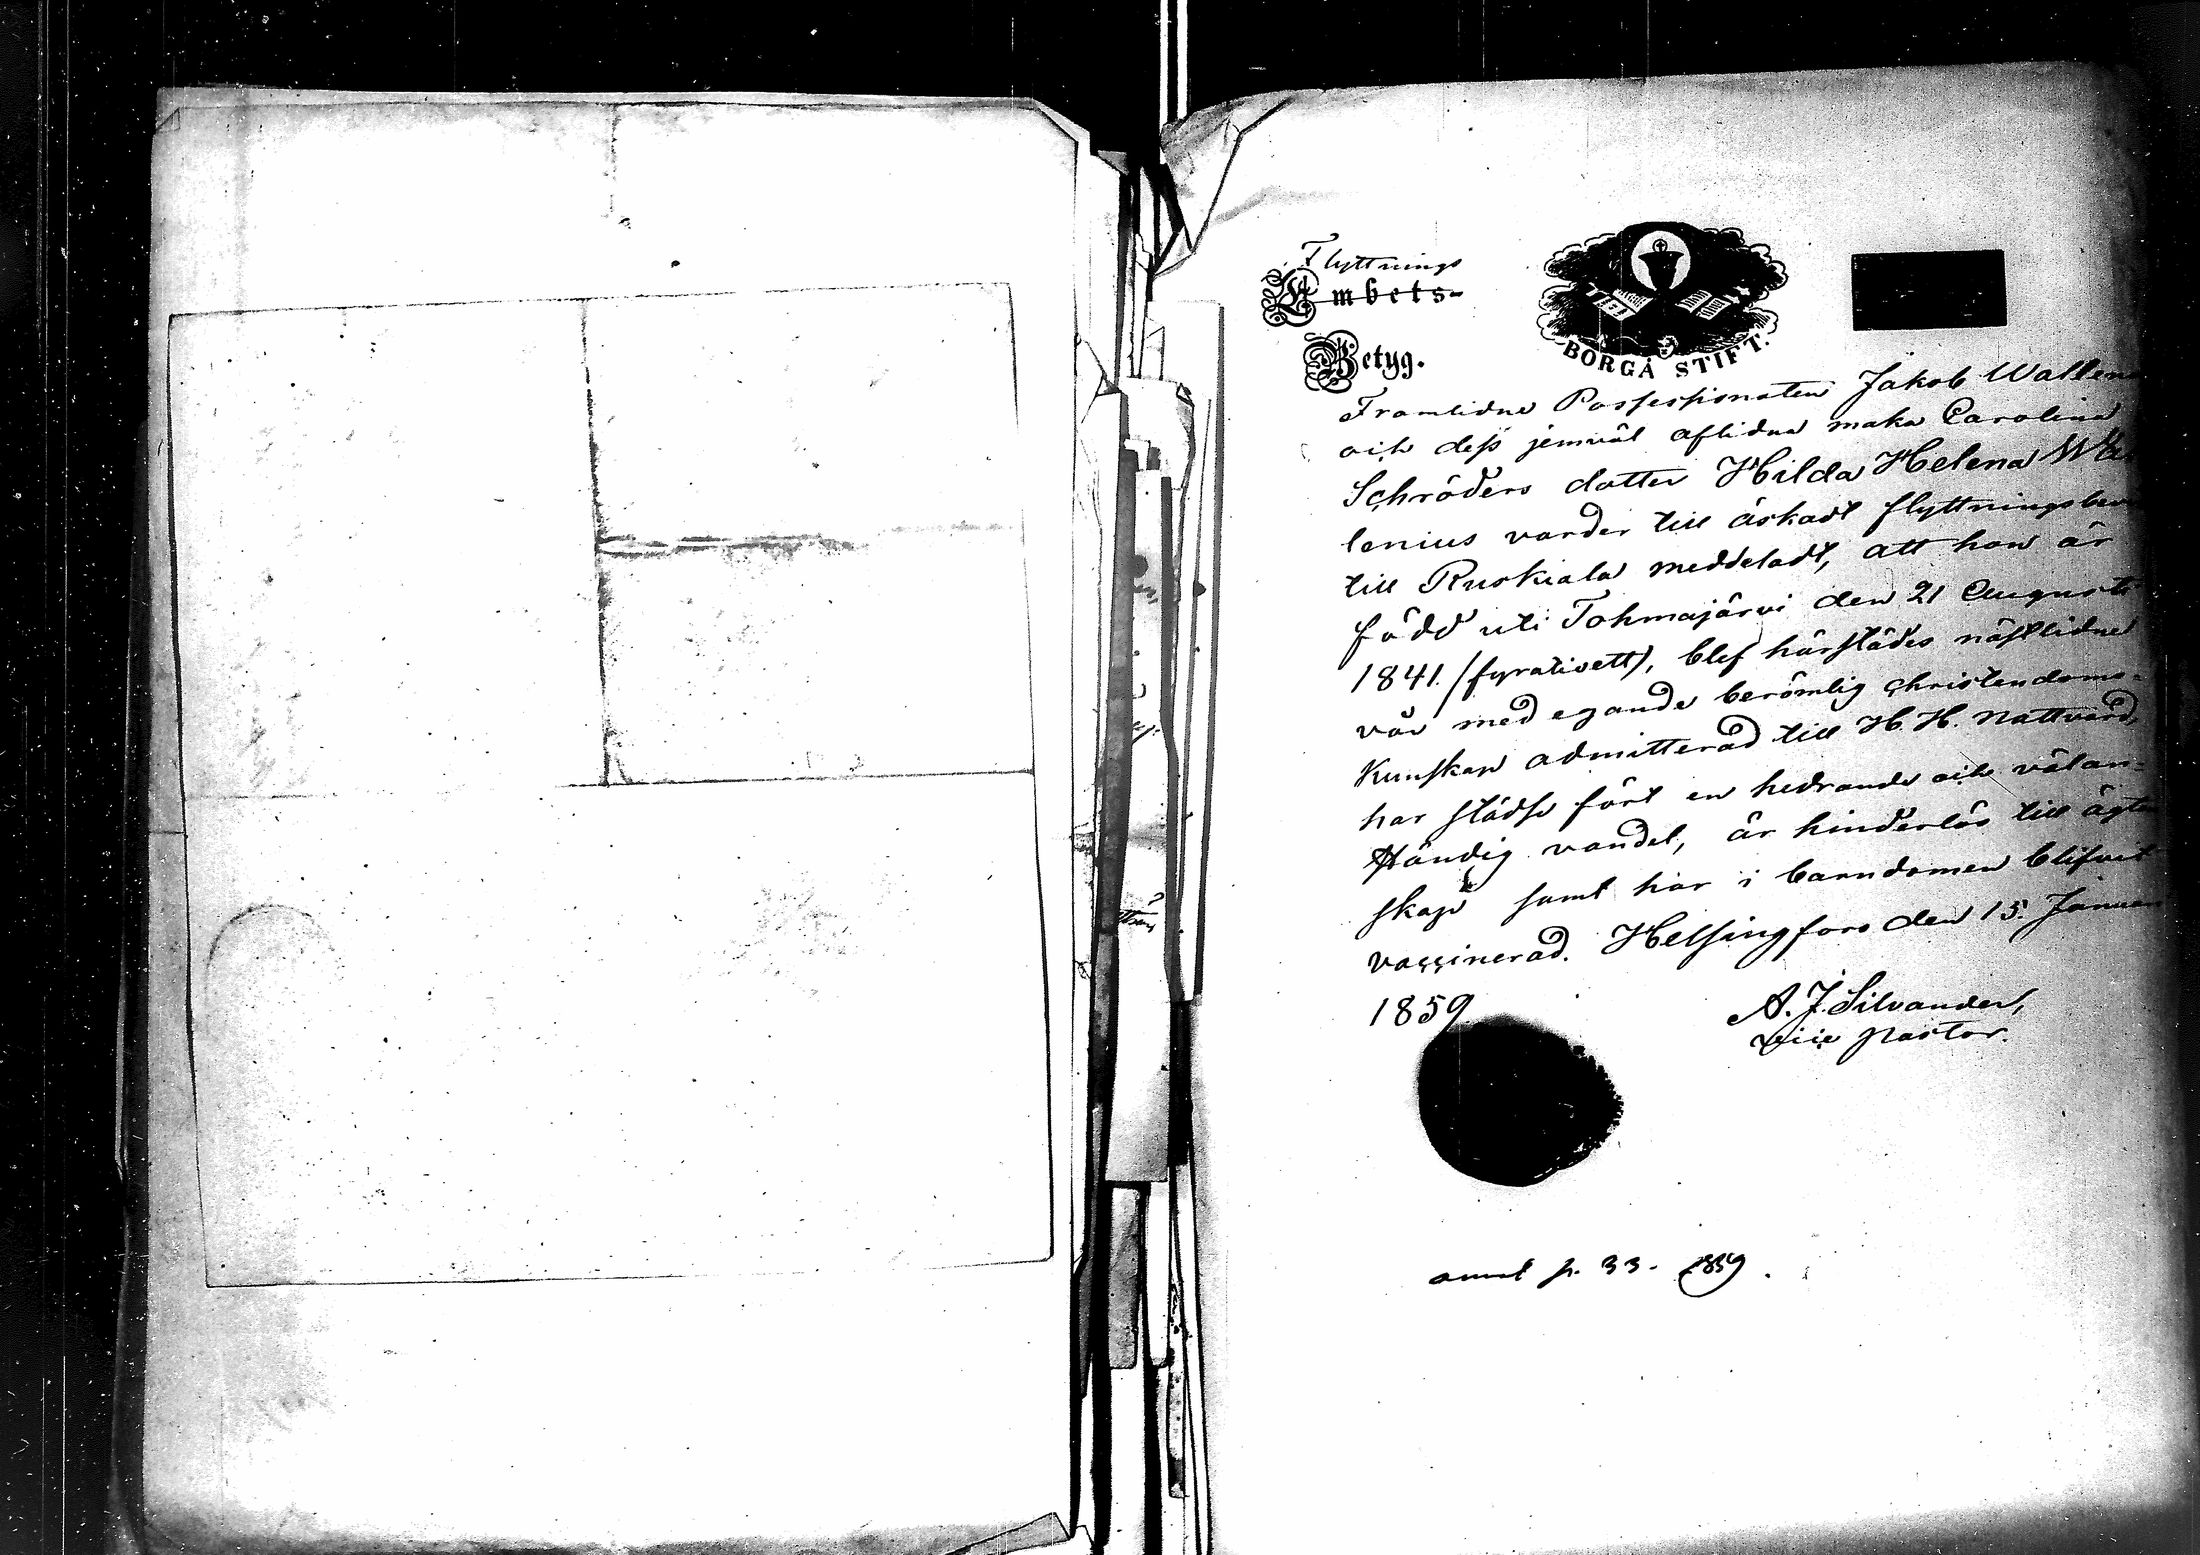 Flyttnings
Ambets-
BORGÅ STIFT.
Betyg.
Framlidne Possessionaten Jakob Wallenius
och dess jemväl aflidna maka Carolina
Schröders dotter Hilda Helena Wal
lenius varder till äskadt flyttningsbevis
till Ruskiala meddeladt, att hon är
född uti Tohmajärvi den 21 Augusti
1841. (fyratioett), blef härstädes nästlidne
vår med egande berömlig christendoms-
kunskap admitterad till H. H. Nattvard,
har städse fört en hedrande och välan-
ständig vandel, är hinderlös till ägten
skap samt har i barndomen blifvit
vaccinerad. Helsingfors den 15. Januari
1859
A. J. Silvander,
Vice Pastor.
p. 33. 1859.